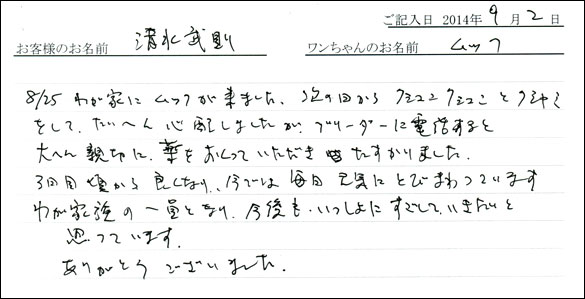 ご記入日 2014年 9月 2日
お客様のお名前 清水武則 ワンちゃんのお名前 ムック
8/25 わが家にムックが来ました、次の日からクシュンクシュンとクシャミ
をして、たいへん心配しましたが、ブリーダーに電話すると
大へん親切に、薬をおくっていただき たすかりました。
3日目頃から良くなり、今では毎日元気にとびまわっています
わが家族の一員となり、今後も、いっしょにすごして、いきたいと
思っています。
ありがとうございました。